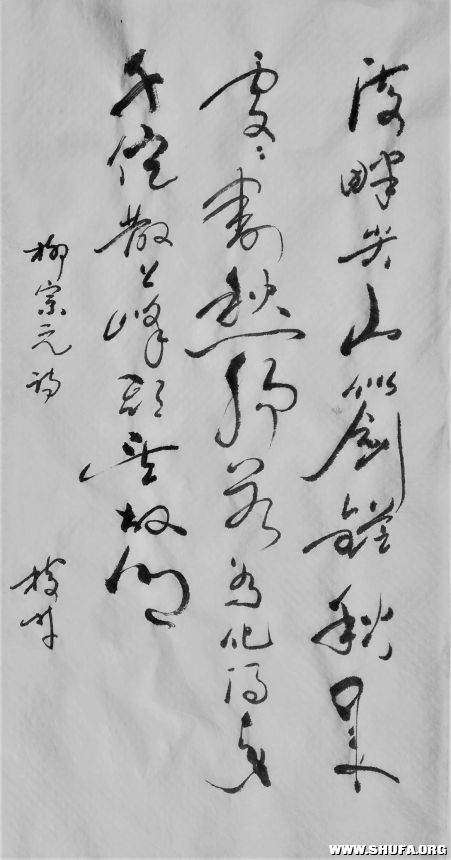 海畔尖山似劍鋩秋来
處々割愁腸若為化得身
千億散上峰頭望故鄉
柳宗元詩